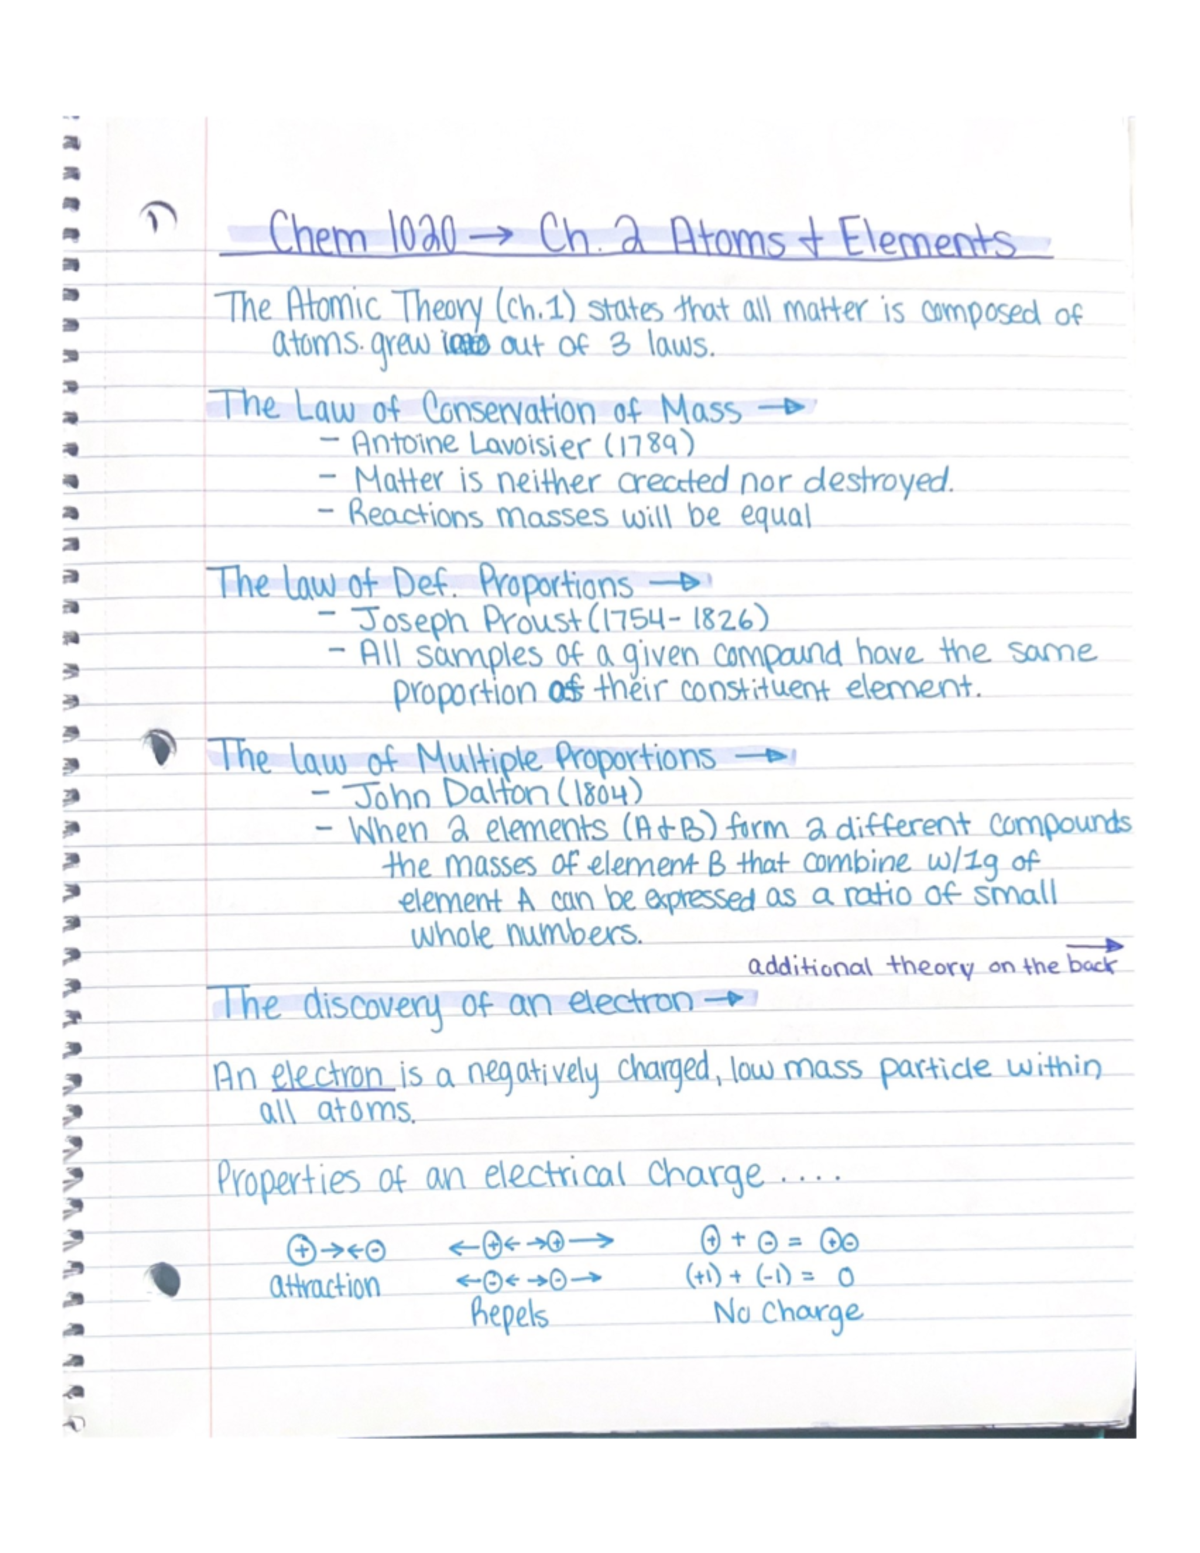 Chem 1020 → Ch. 2 Atoms + Elements
The Atomic Theory (ch.1) states that all matter is composed of
atoms. grew out of 3 laws.
The Law of Conservation of Mass →
- Antoine Lavoisier (1789)
- Matter is neither created nor destroyed.
- Reactions masses will be equal
The law of Def. Proportions →
- Joseph Proust (1754-1826)
- All samples of a given compound have the same
proportion of their constituent element.
The law of Multiple Proportions →
- John Dalton (1804)
- When 2 elements (A+B) form 2 different compounds
the masses of element B that combine w/1g of
element A can be expressed as a ratio of small
whole numbers.
additional theory on the back →
The discovery of an electron →
An electron is a negatively charged, low mass particle within
all atoms.
Properties of an electrical charge ....
⊕→←⊖ ←⊕← →⊕→ ⊕ + ⊖ = ⊕⊖
attraction ←⊖← →⊖→ (+1) + (-1) = 0
Repels No Charge